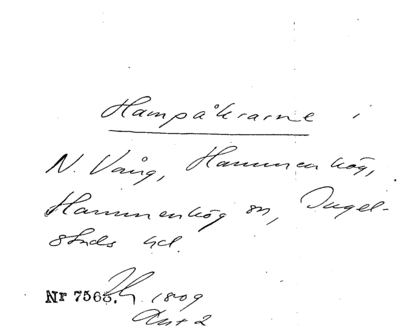 Hampåkrarne i
N. Vång, Hammenhög,
Hammenhög sn, Ingel-
stads hd.
Nr 7565. 1809
Akt 2